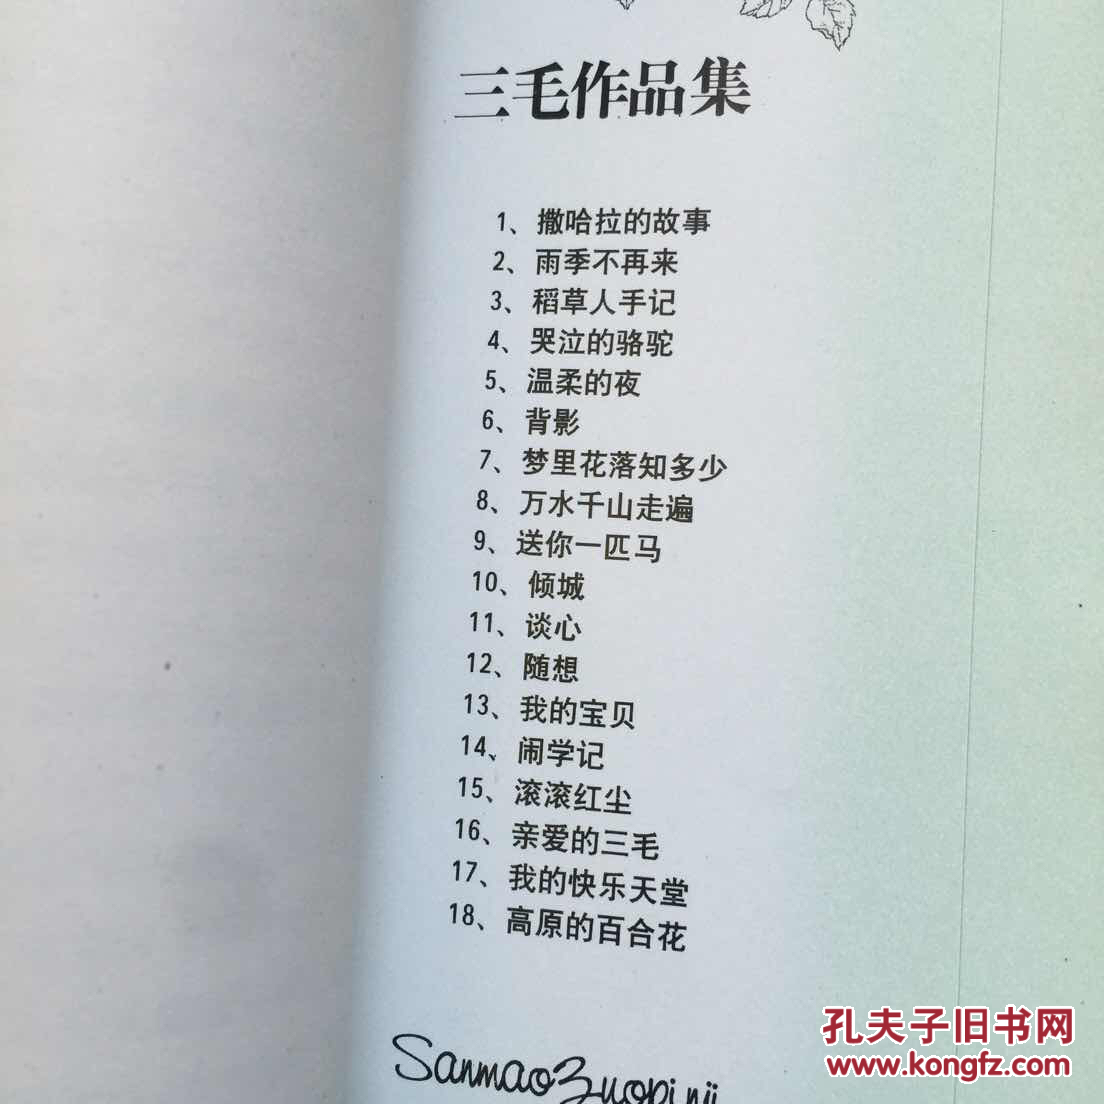 三毛作品集
1、撒哈拉的故事
2、雨季不再来
3、稻草人手记
4、哭泣的骆驼
5、温柔的夜
6、背影
7、梦里花落知多少
8、万水千山走遍
9、送你一匹马
10、倾城
11、谈心
12、随想
13、我的宝贝
14、闹学记
15、滚滚红尘
16、亲爱的三毛
17、我的快乐天堂
18、高原的百合花
SanmaoZuopinji
孔夫子旧书网
www.kongfz.com